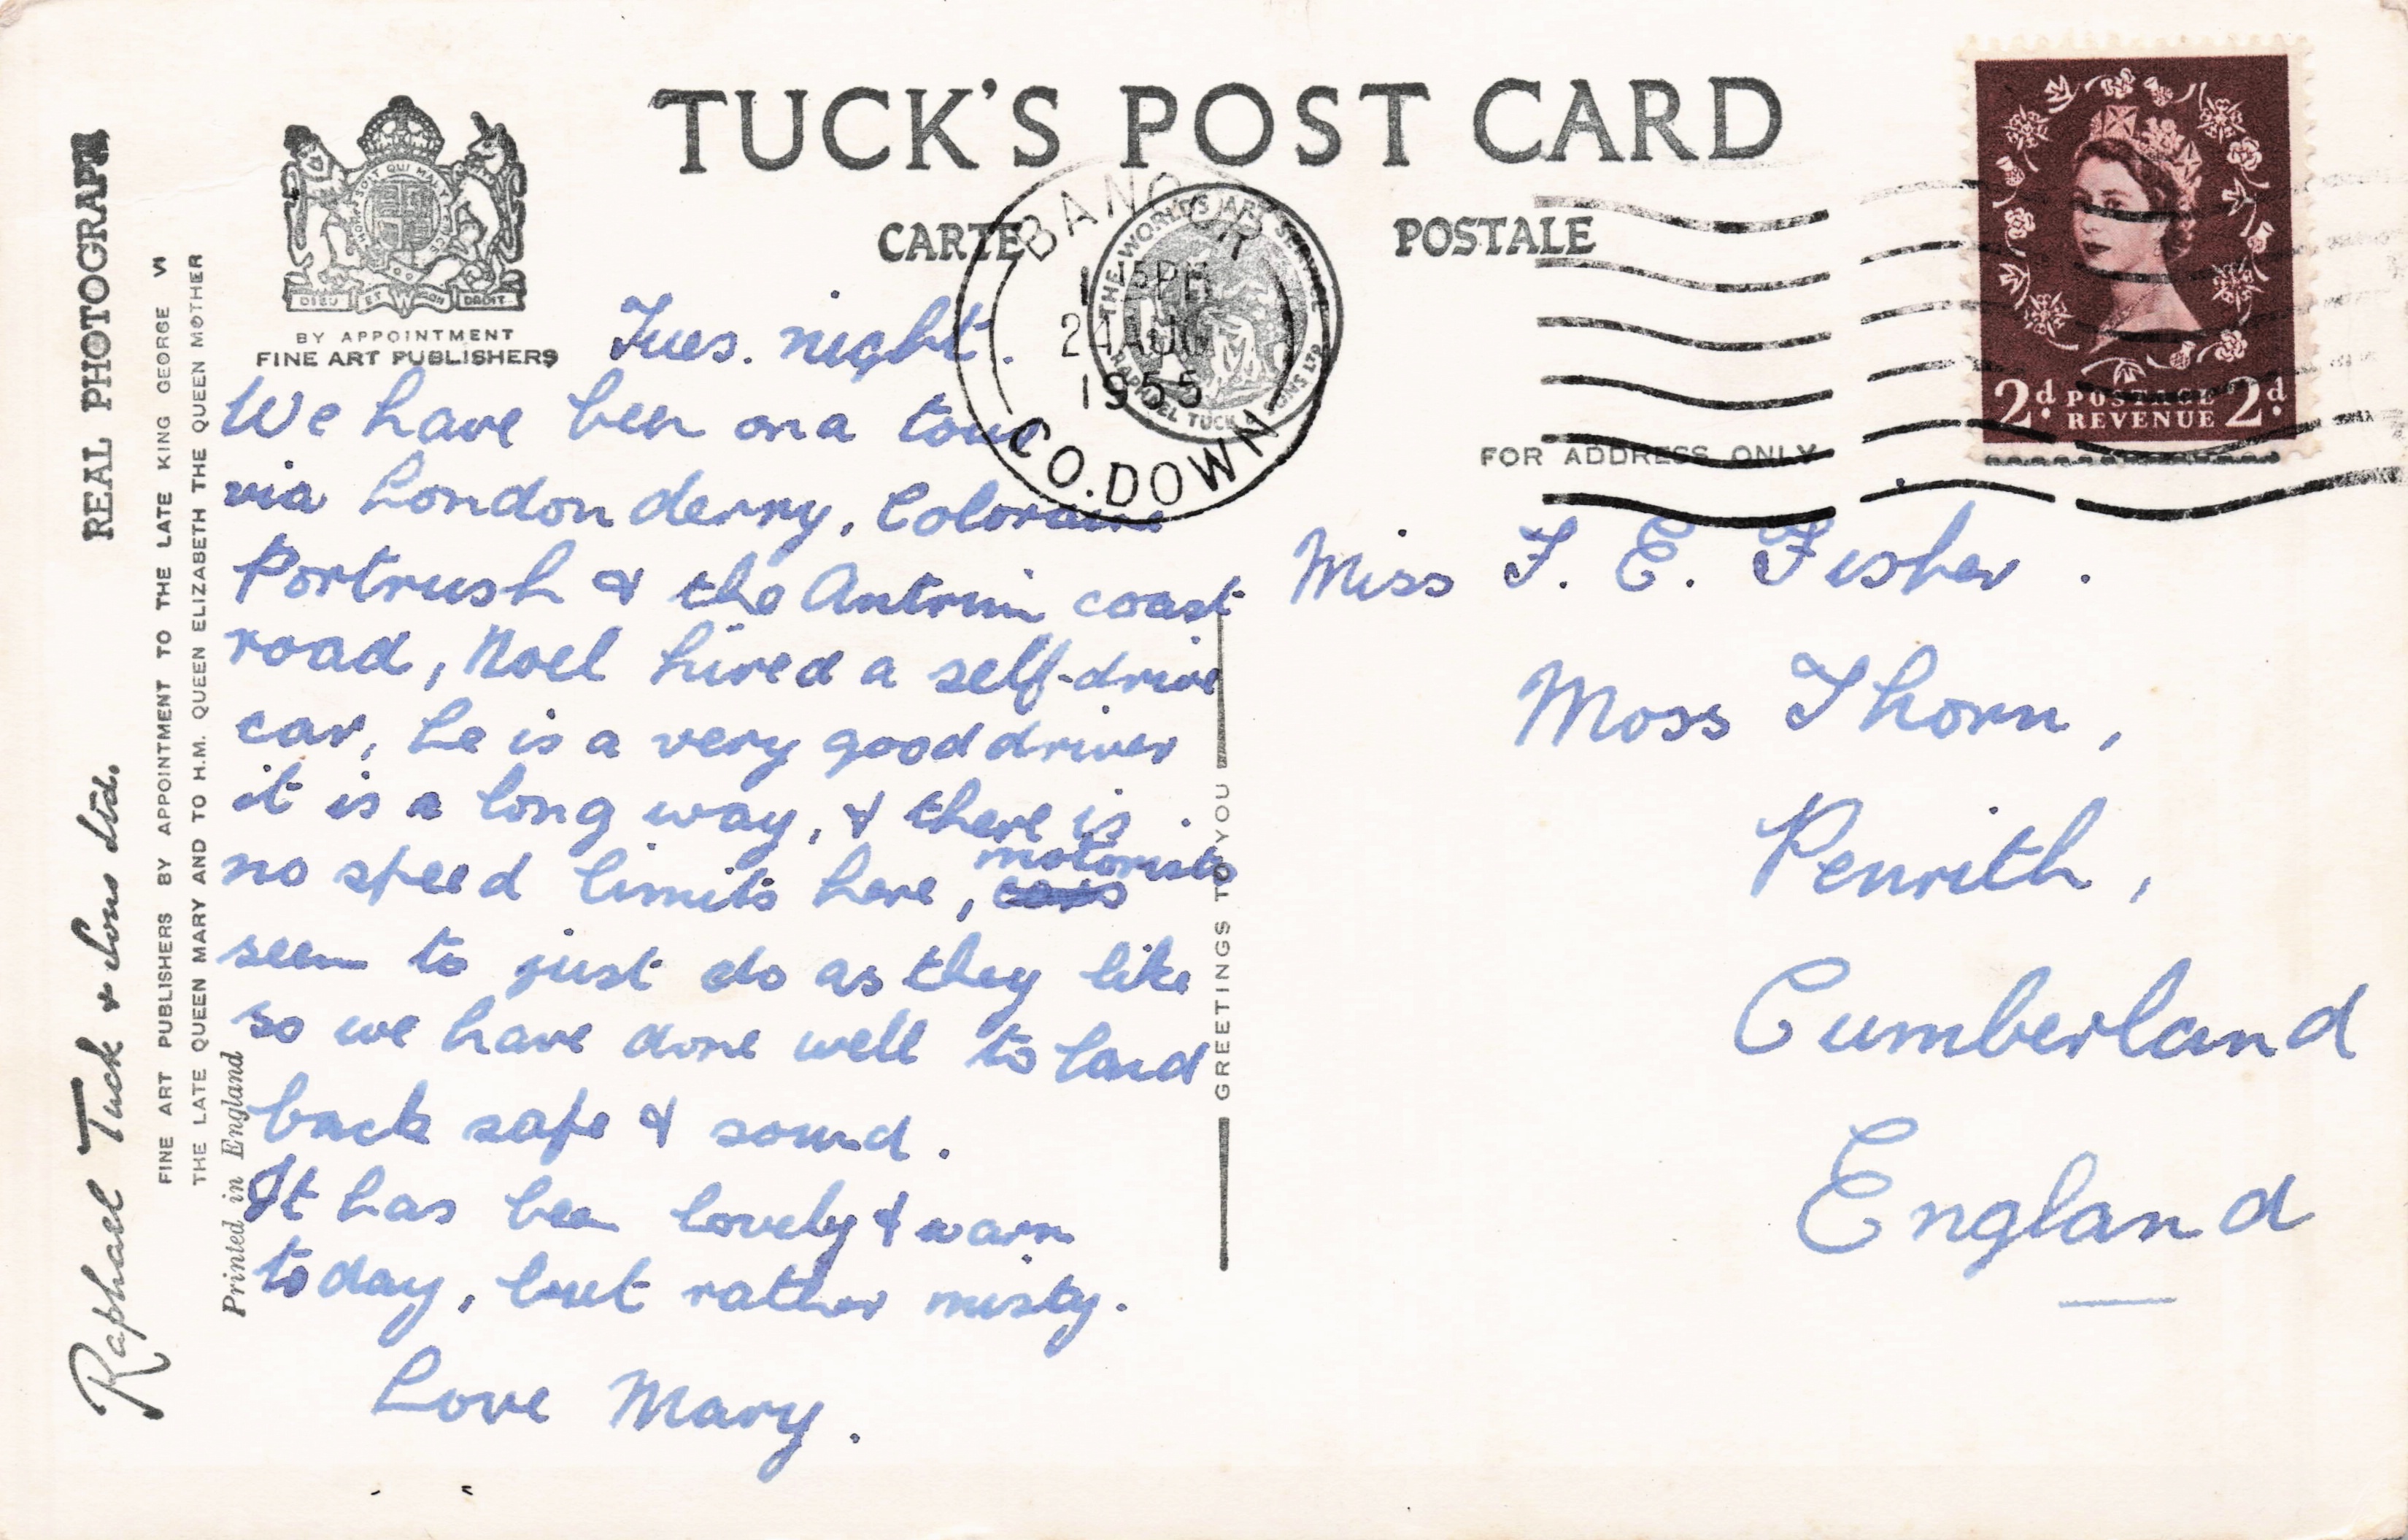 TUCK'S POST CARD
CARTE POSTALE
DIEU ET MON DROIT
BY APPOINTMENT
FINE ART PUBLISHERS
BANGOR
24 AUG
1955
CO. DOWN
THE WORLD'S ART SERVICE
RAPHAEL TUCK & SONS LTD
2d. POSTAGE REVENUE 2d.
FOR ADDRESS ONLY
REAL PHOTOGRAPH
Raphael Tuck & Sons Ltd.
FINE ART PUBLISHERS BY APPOINTMENT TO THE LATE KING GEORGE VI
THE LATE QUEEN MARY AND TO H.M. QUEEN ELIZABETH THE QUEEN MOTHER
Printed in England
Tues. night.
We have been on a tour
via Londonderry, Coloraine
Portrush & the Antrim coast
road, Noel hired a self-drive
car, he is a very good driver
it is a long way, & there is
no speed limits here, motorists
seem to just do as they like
so we have done well to land
back safe & sound.
It has been lovely & warm
today, but rather misty.
Love Mary.
GREETINGS TO YOU
Miss F. E. Fisher.
Moss Thorn,
Penrith,
Cumberland
England